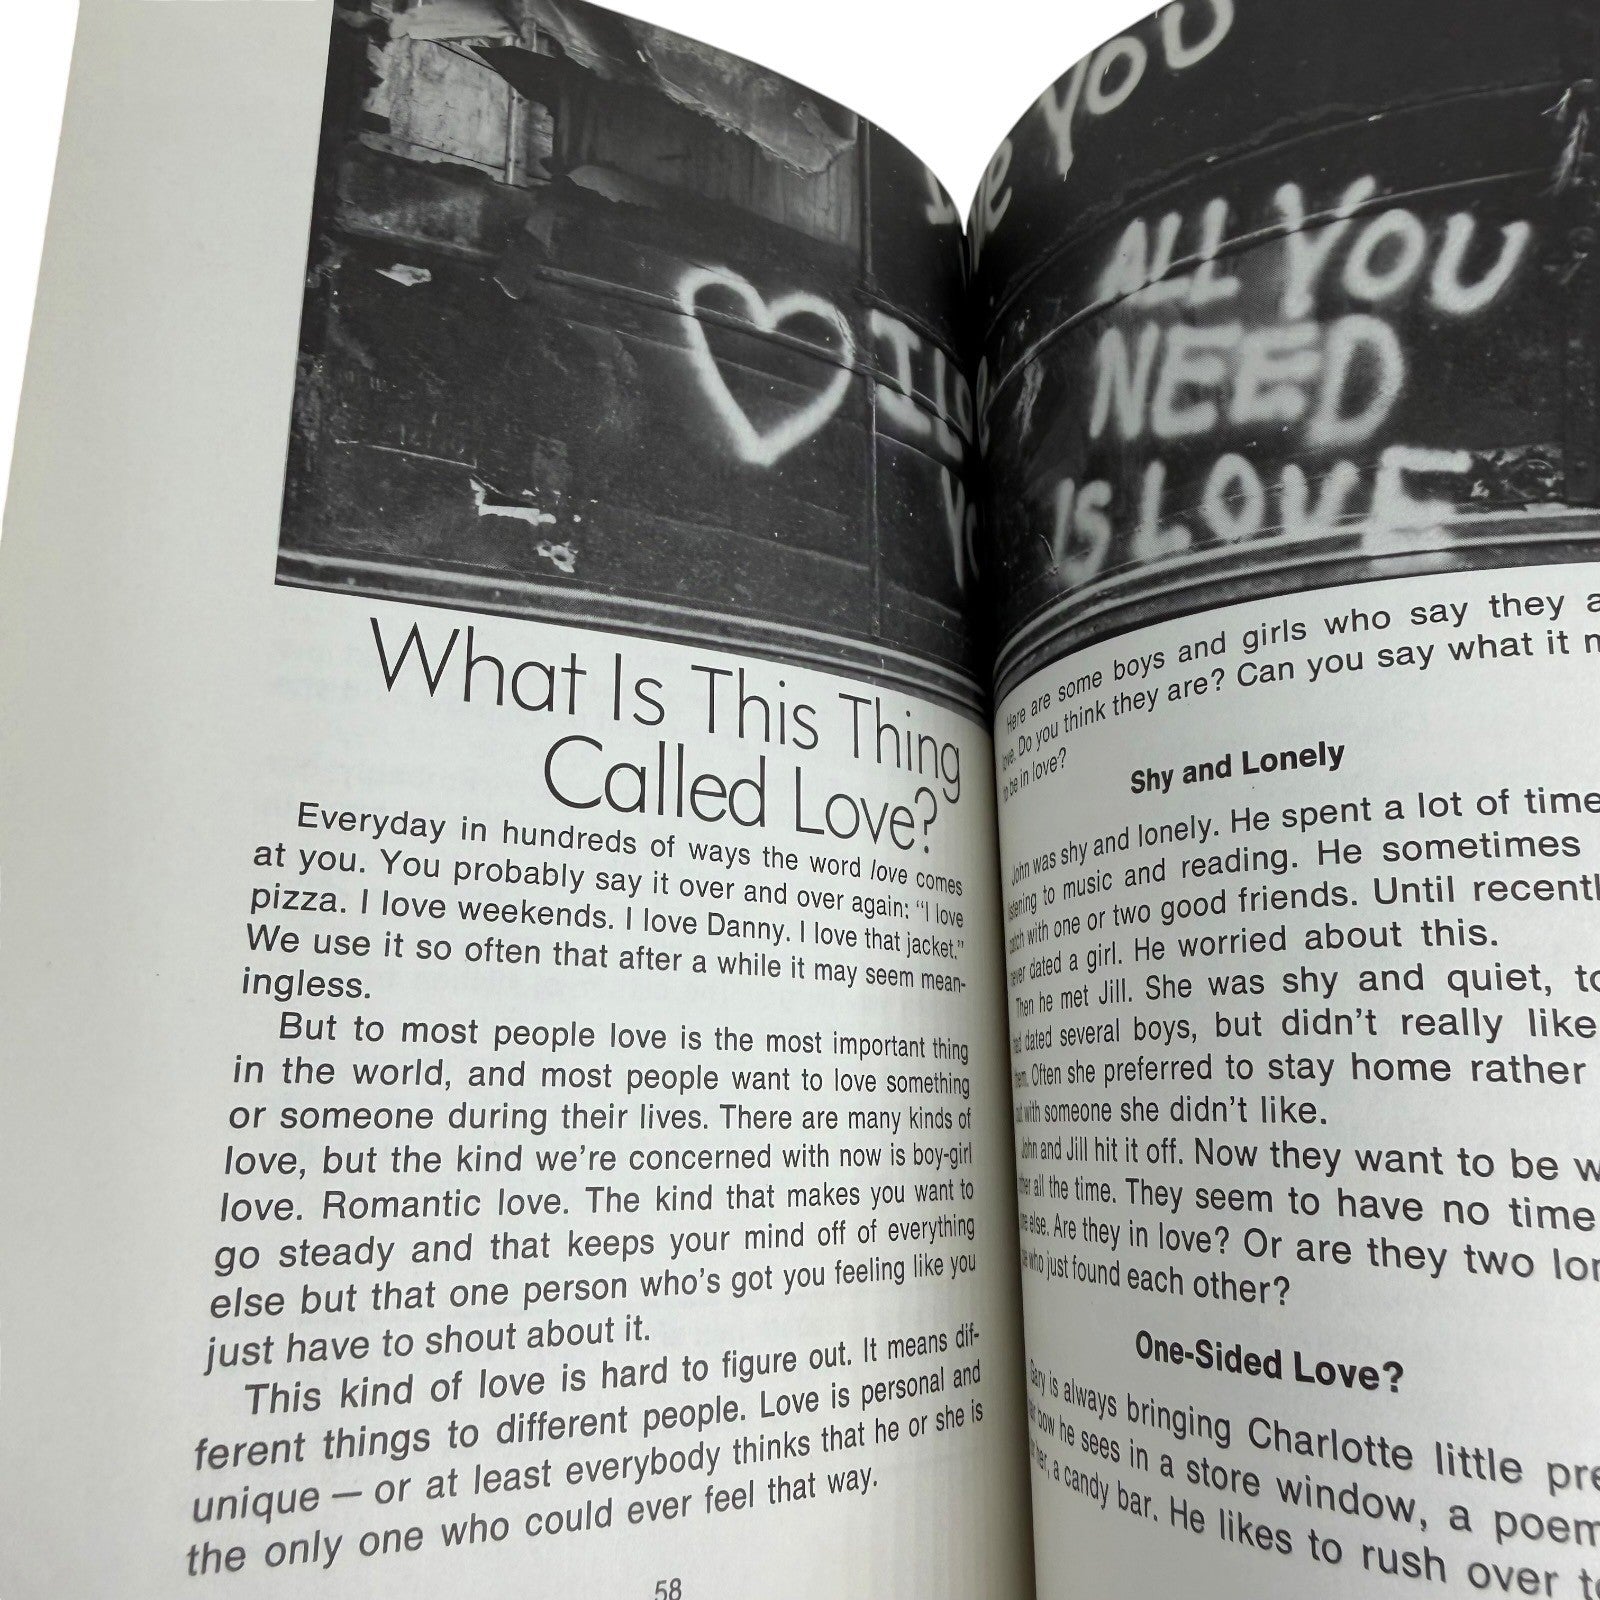 I
I LO
YO
What Is This Thing
Called Love?
Everyday in hundreds of ways the word love comes
at you. You probably say it over and over again: "I love
pizza. I love weekends. I love Danny. I love that jacket."
We use it so often that after a while it may seem mean-
ingless.
But to most people love is the most important thing
in the world, and most people want to love something
or someone during their lives. There are many kinds of
love, but the kind we're concerned with now is boy-girl
love. Romantic love. The kind that makes you want to
go steady and that keeps your mind off of everything
else but that one person who's got you feeling like you
just have to shout about it.
This kind of love is hard to figure out. It means dif-
ferent things to different people. Love is personal and
unique — or at least everybody thinks that he or she is
the only one who could ever feel that way.
58
YOU
ALL YOU
NEED
IS LOVE
Here are some boys and girls who say they a
love. Do you think they are? Can you say what it m
to be in love?
Shy and Lonely
John was shy and lonely. He spent a lot of time
listening to music and reading. He sometimes
with one or two good friends. Until recentl
never dated a girl. He worried about this.
Then he met Jill. She was shy and quiet, to
had dated several boys, but didn't really like
them. Often she preferred to stay home rather
out with someone she didn't like.
John and Jill hit it off. Now they want to be w
other all the time. They seem to have no time
else. Are they in love? Or are they two lon
who just found each other?
One-Sided Love?
Gary is always bringing Charlotte little pre
bow he sees in a store window, a poem
her, a candy bar. He likes to rush over to